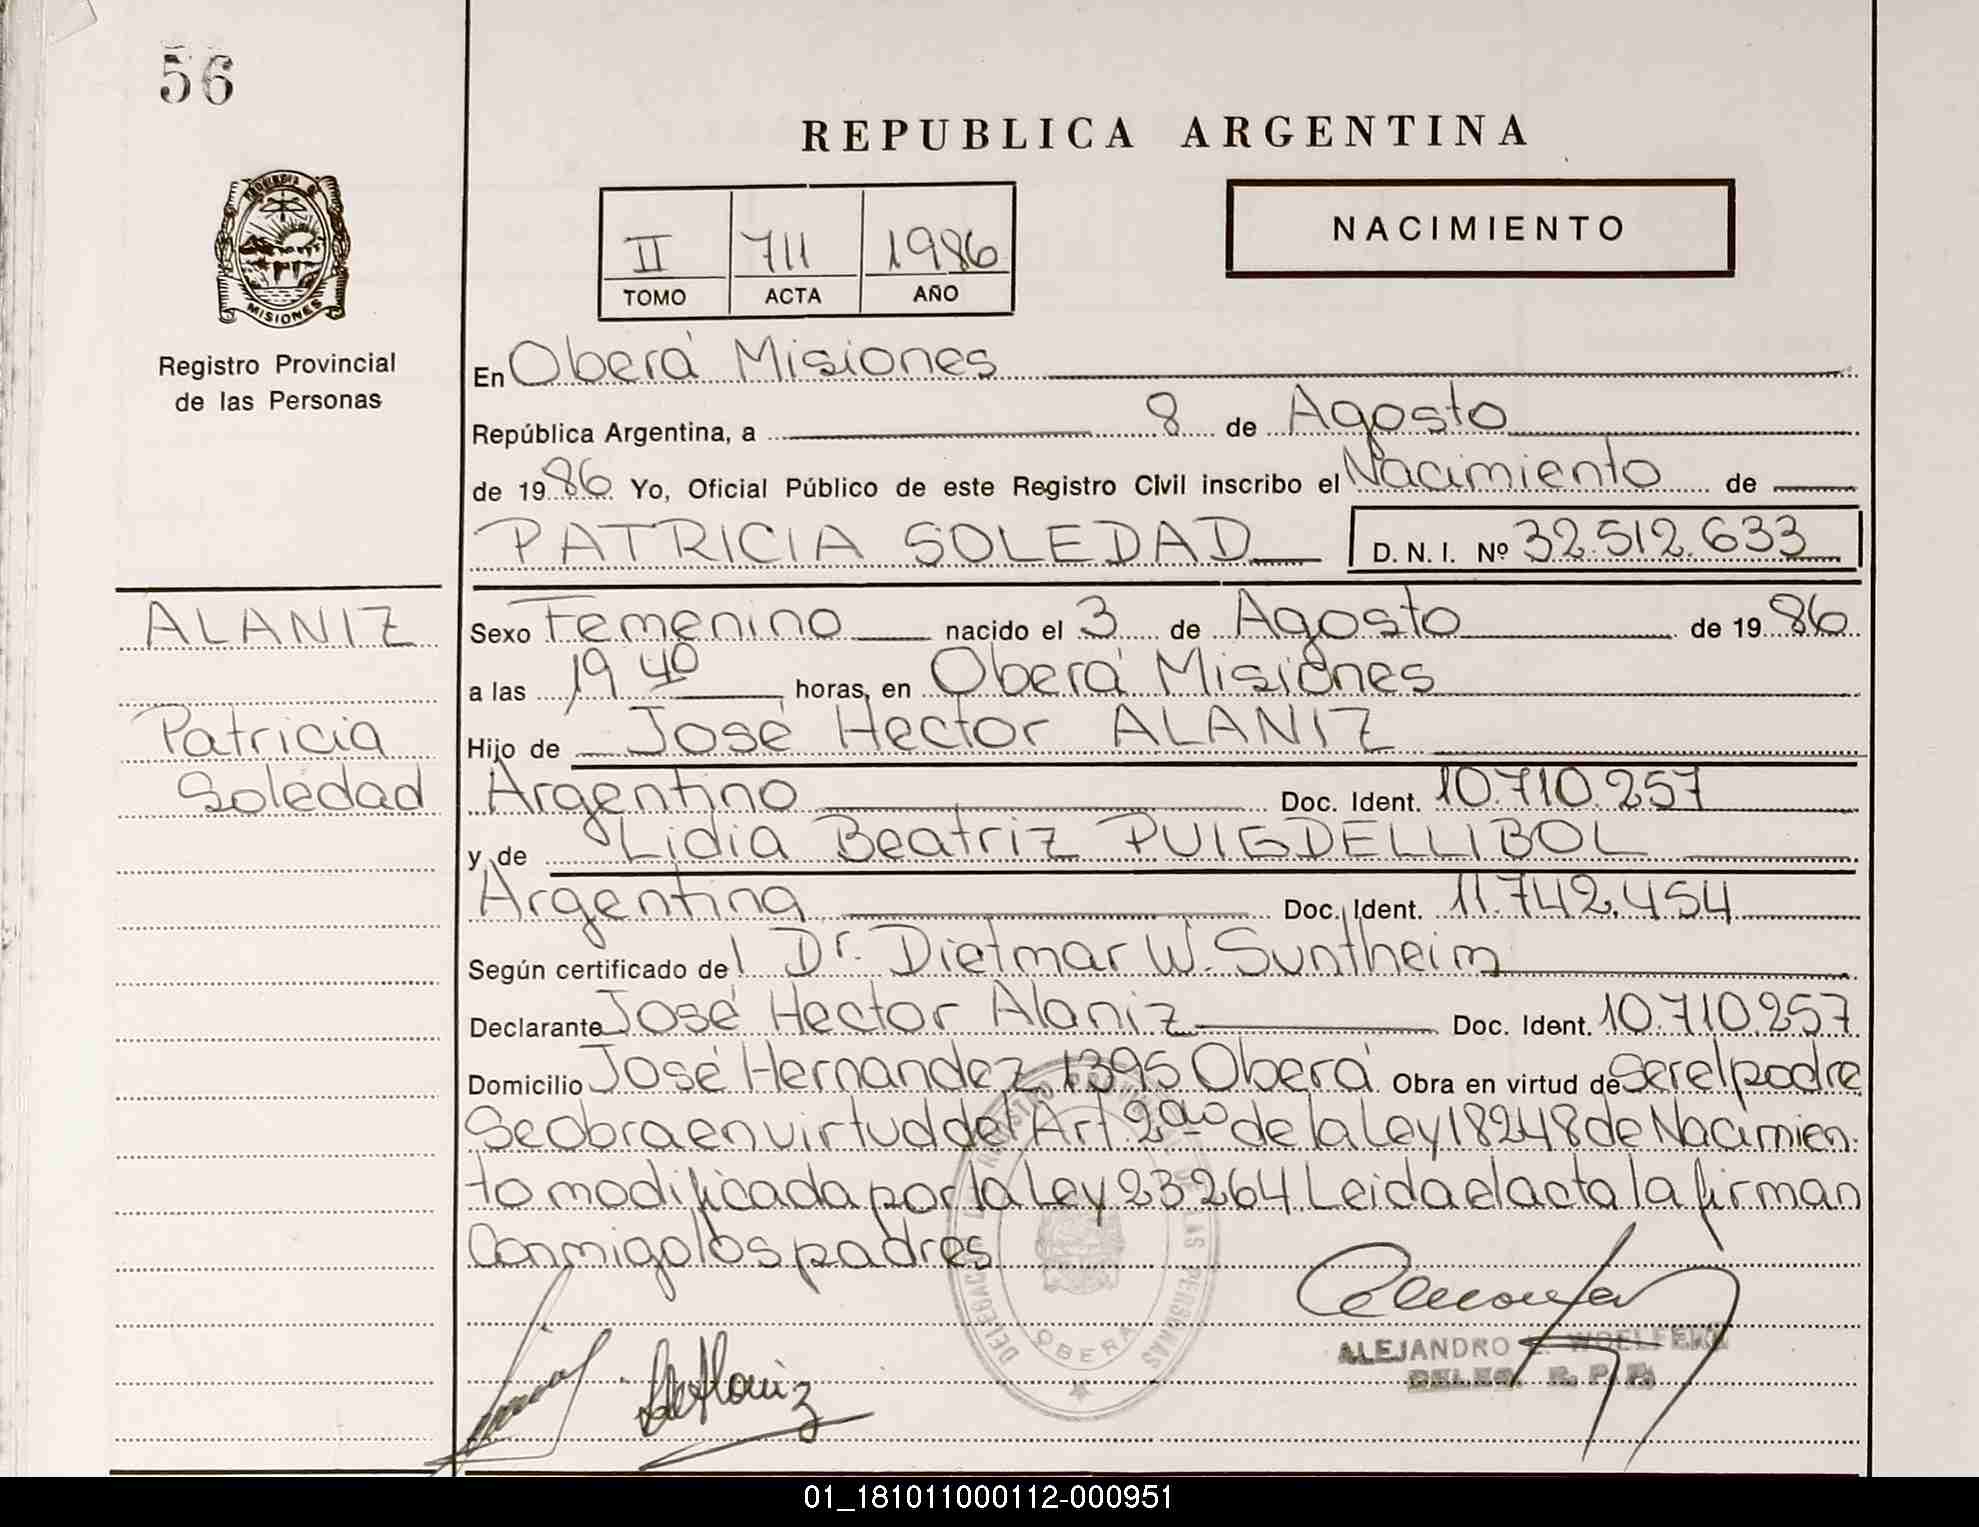 56
REPUBLICA ARGENTINA
PROVINCIA DE
MISIONES
Registro Provincial
de las Personas
II 711 1986
TOMO ACTA AÑO
NACIMIENTO
En Oberá Misiones
República Argentina, a 8 de Agosto
de 1986 Yo, Oficial Público de este Registro Civil inscribo el Nacimiento de
PATRICIA SOLEDAD D. N. I. Nº 32.512.633
ALANIZ
Patricia
Soledad
Sexo Femenino nacido el 3 de Agosto de 1986
a las 19 40 horas, en Oberá Misiones
Hijo de José Hector ALANIZ
Argentino Doc. Ident. 10.710.257
y de Lidia Beatriz PUIGDELLIBOL
Argentina Doc. Ident. 11.742.454
Según certificado del Dr. Dietmar W. Suntheim
Declarante José Hector Alaniz Doc. Ident. 10.710.257
Domicilio José Hernandez 1395 Oberá Obra en virtud de Ser el padre
Se obra en virtud del Art. 2do de la Ley 18248 de Nacimien-
to modificada por la Ley 23264. Leida el acta la firman
Conmigo los padres
DELEGACION REGISTRO PROVINCIAL DE LAS PERSONAS
OBERA
LdeAlaniz
ALEJANDRO
DELEG. R. P. P.
01_181011000112-000951